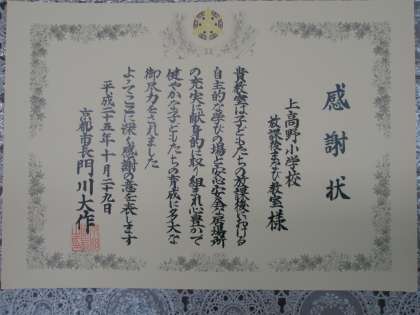 感謝状
上高野小学校
放課後まなび教室様
貴教室は子どもたちの放課後における
自主的な学びの場と安心安全な居場所
の充実に献身的に取り組まれ心豊かで
健やかな子どもたちの育成に多大な
御尽力をされました
よってここに深く感謝の意を表します
平成二十五年十月二十九日
京都市長門川大作